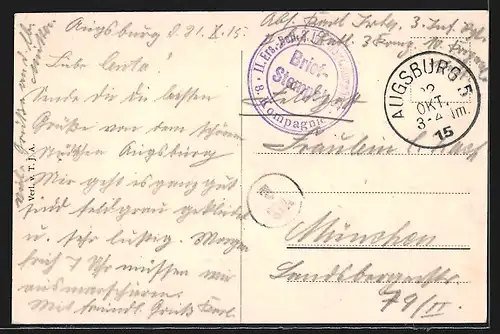 Augsburg d. 21. X. 15.
Liebe Centa!
Sende dir die besten
Grüße von dem schönen
Städtchen Augsburg
Mir geht es ganz gut
sind feldgrau gekleidet
u. sehr lustig. Morgen
früh 7 Uhr müssen wir
ausmarschieren.
Mit freundl. Gruß Karl.
Verl. v. T. J. A.
Abs. Karl 3. Inf. Rgt.
II. Ers. Batl. 3. Inf.
Brief-
Stempel
8. Kompagnie
Feldpost
AUGSBURG 5
22
OKT.
3-4 Nm.
15
Fräulein C.
München
Landsbergerstr.
79/II.